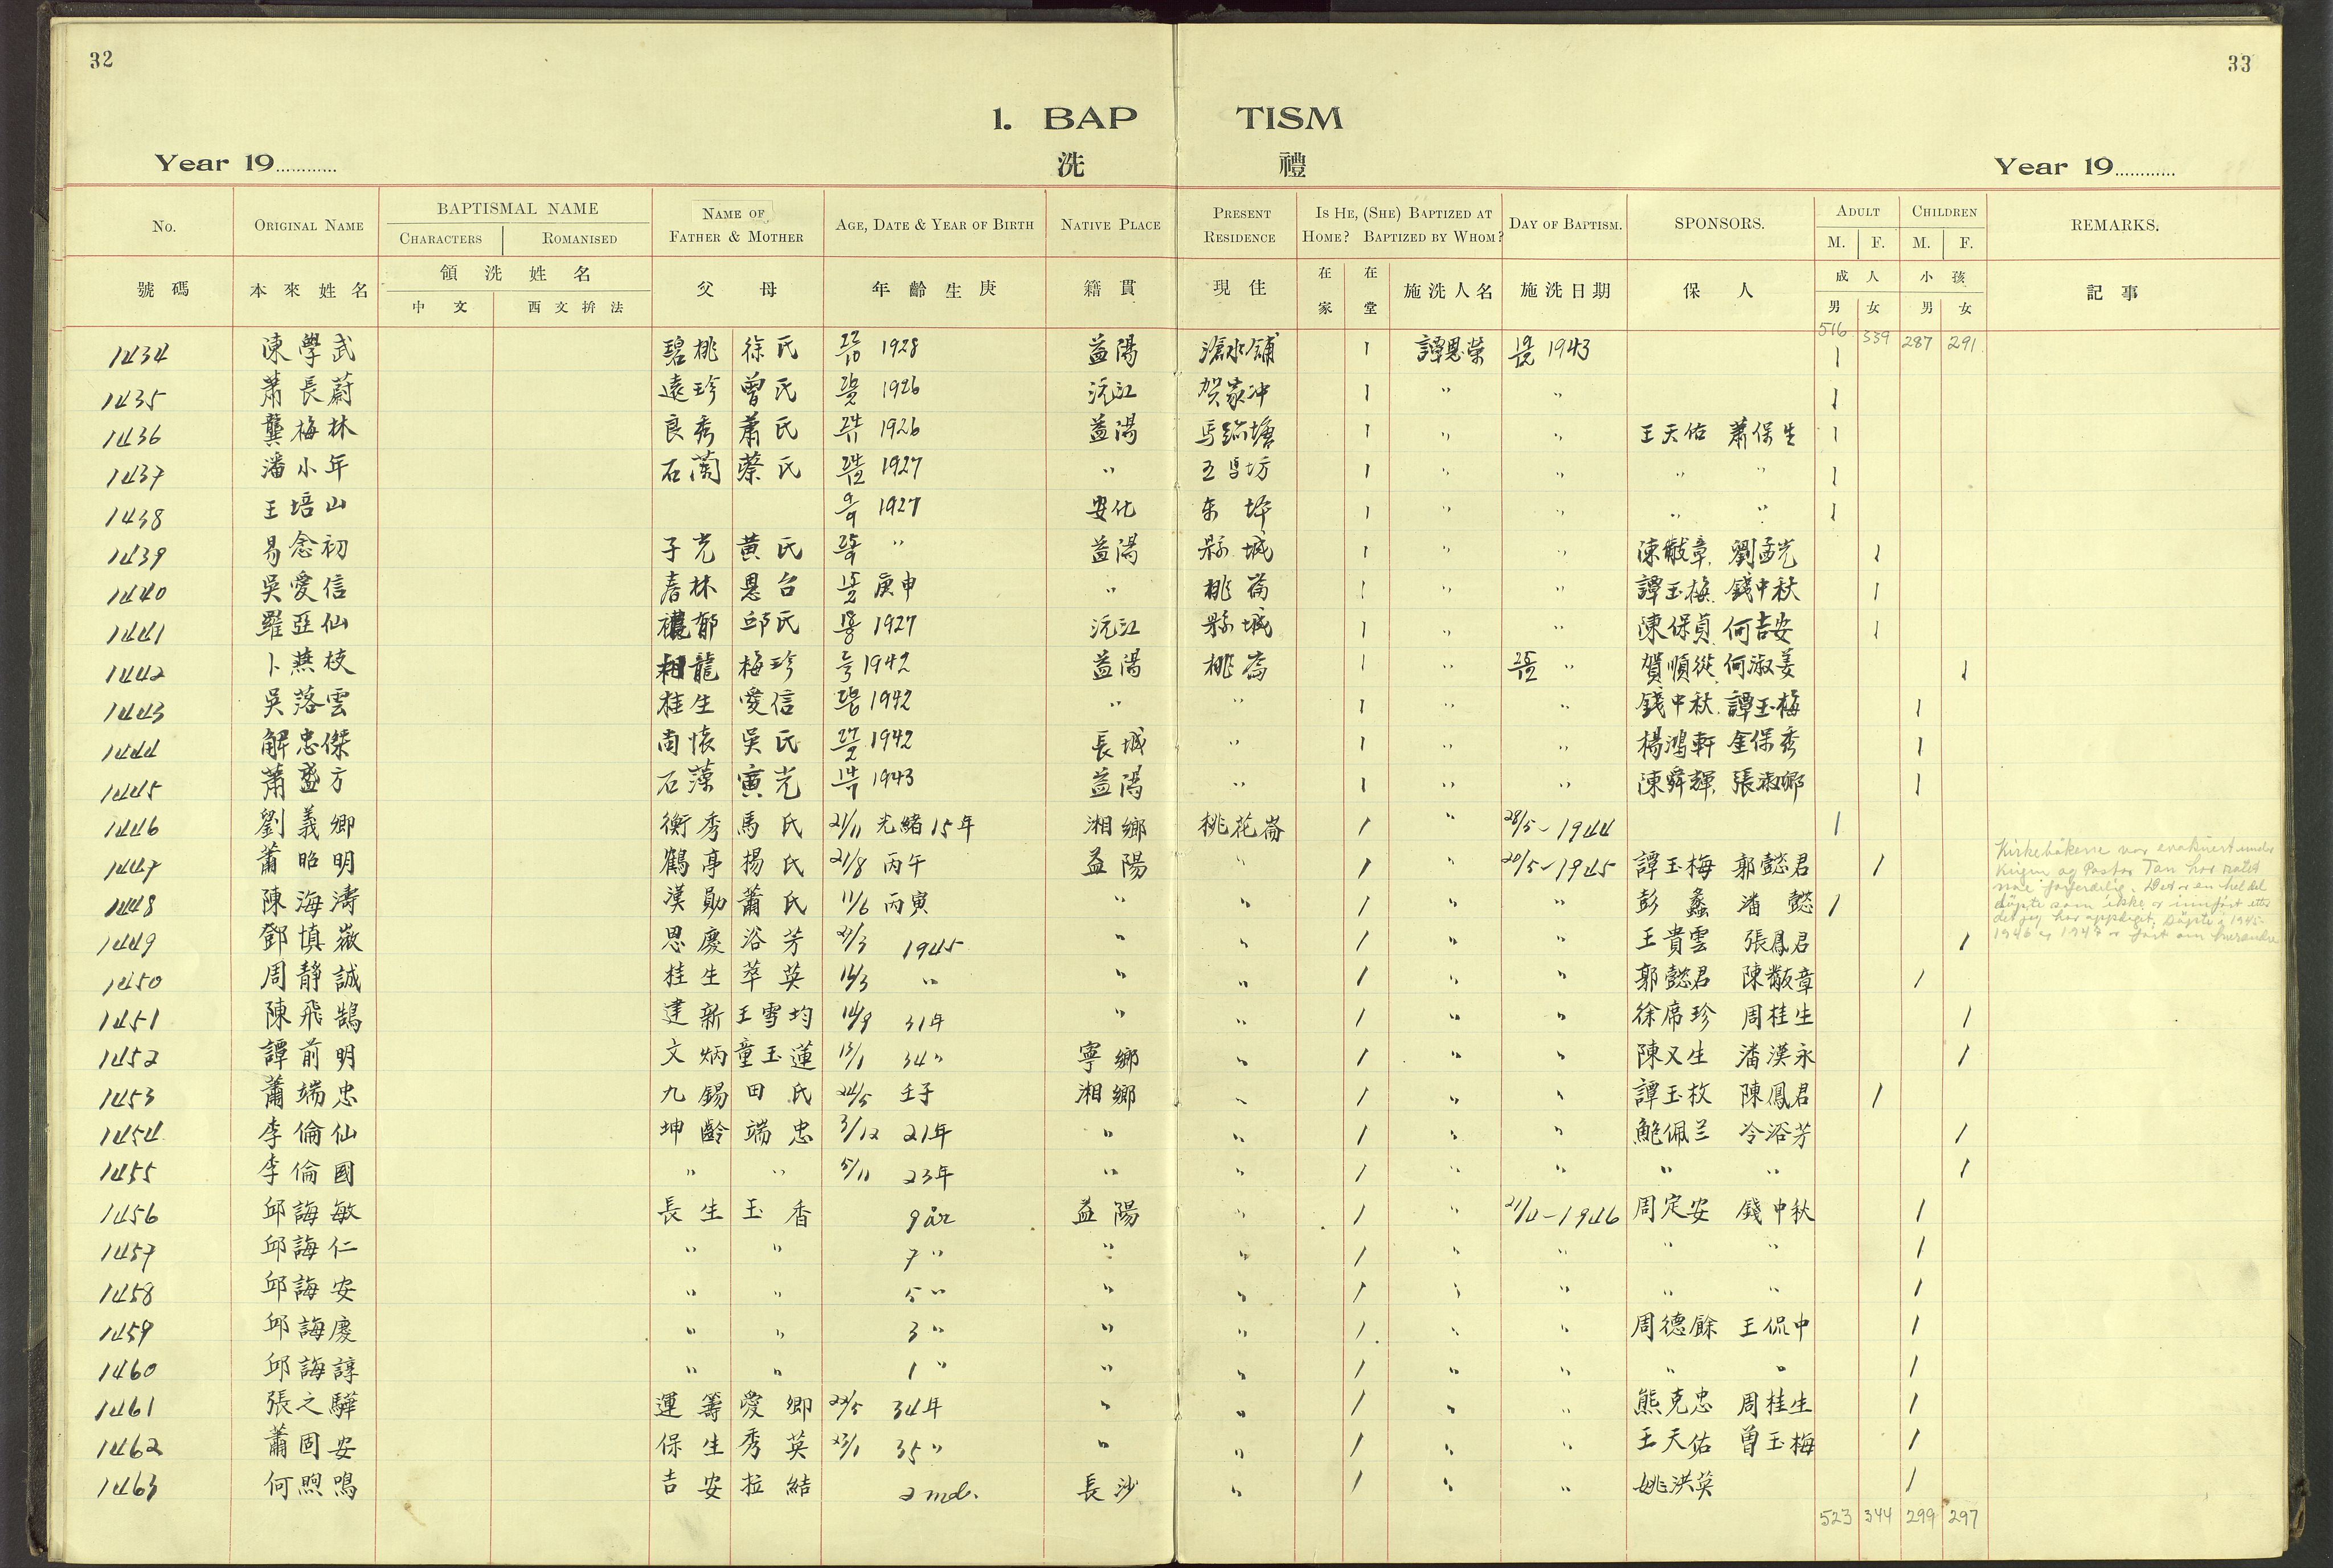 32
33
1. BAP TISM
Year 19............ 洗 禮 Year 19............
No. ORIGINAL NAME BAPTISMAL NAME CHARACTERS ROMANISED NAME OF FATHER & MOTHER AGE, DATE & YEAR OF BIRTH NATIVE PLACE PRESENT RESIDENCE IS HE, (SHE) BAPTIZED AT HOME? BAPTIZED BY WHOM? DAY OF BAPTISM. SPONSORS. ADULT M. F. CHILDREN M. F. REMARKS.
號碼 本來姓名 領洗姓名 中文 西文拚法 父母 年齡生庚 籍貫 現住 在家 在堂 施洗人名 施洗日期 保人 成人 男 女 小孩 男 女 記事
516 339 287 291
1434 陳學武 碧桃 徐氏 1928 益陽 滄水舖 1 譚恩榮 1943 1
1435 蕭長蔚 遠珍 曾氏 1926 沅江 賀家冲 1 " " 1
1436 龔梅林 良秀 蕭氏 1926 益陽 1 " " 王天佑 蕭保生 1
1437 潘小年 石蘭 蔡氏 1927 " 1 " " " " 1
1438 王培山 9/9 1927 安化 東坪 1 " " " " 1
1439 易念初 子光 黃氏 " 益陽 縣城 1 " " 陳黻章 劉孟光 1
1440 吳愛信 春林 恩台 庚申 " 桃崙 1 " " 譚玉梅 錢中秋 1
1441 羅亞仙 邱氏 1927 沅江 縣城 1 " " 陳保貞 何吉安 1
1442 卜燕枝 龍 梅珍 1942 益陽 桃崙 1 " " 賀順從 何淑姜 1
1443 吳落雲 桂生 愛信 1942 " " 1 " " 錢中秋 譚玉梅 1
1444 解忠傑 尚懷 吳氏 1942 長城 " 1 " " 楊鴻軒 金保秀 1
1445 蕭盛方 石藻 寅光 1943 益陽 " 1 " " 陳舜輝 張淑鄉 1
1446 劉義卿 衡秀 馬氏 21/11 光緒15年 湘鄉 桃花崙 1 " 28/5-1944 1
1447 蕭昭明 鶴亭 揚氏 21/8 丙午 益陽 " 1 " 20/5-1945 譚玉梅 郭懿君 1
1448 陳海濤 漢勛 蕭氏 11/6 丙寅 " " 1 " " 彭蠡 潘懿 1
1449 鄧慎 思慶 浴芳 1945 " " 1 " " 王貴雲 張鳳君 1
1450 周靜誠 桂生 萃英 " " " 1 " " 郭懿君 陳黻章 1
1451 陳飛鵠 建新 王雪均 31年 " " 1 " " 徐席珍 周桂生 1
1452 譚前明 文炳 童玉蓮 13/1 34" 寧鄉 " 1 " " 陳又生 潘漢永 1
1453 蕭端忠 九錫 田氏 24/5 壬子 湘鄉 " 1 " " 譚玉枚 陳鳳君 1
1454 李倫仙 坤齡 端忠 3/12 21年 " " 1 " " 鮑佩兰 冷浴芳 1
1455 李倫國 " " 5/11 23年 " " 1 " " " " 1
1456 邱誨敏 長生 玉香 9 år 益陽 " 1 " 21/4-1946 周定安 錢中秋 1
1457 邱誨仁 " " 7 " " " 1 " " " " 1
1458 邱誨安 " " 5 " " " 1 " " " " 1
1459 邱誨慶 " " 3 " " " 1 " " 周德餘 王侃中 1
1460 邱誨諄 " " 1 " " " 1 " " " " 1
1461 張之驊 運籌 愛卿 34年 " " 1 " " 熊克忠 周桂生 1
1462 蕭固安 保生 秀英 35" " " 1 " " 王天佑 曾玉梅 1
1463 何煦鳴 吉安 拉結 2 md. 長沙 " 1 " " 姚洪英 1
Kirkebøkene var evakuert under
krigen og Pastor Tan har notet
noe forferdelig. Det er en hel del
døpte som ikke er innført etter
det jeg har oppdaget. Døpte i 1945
1946 og 1947 er ført om hverandre
523 344 299 297